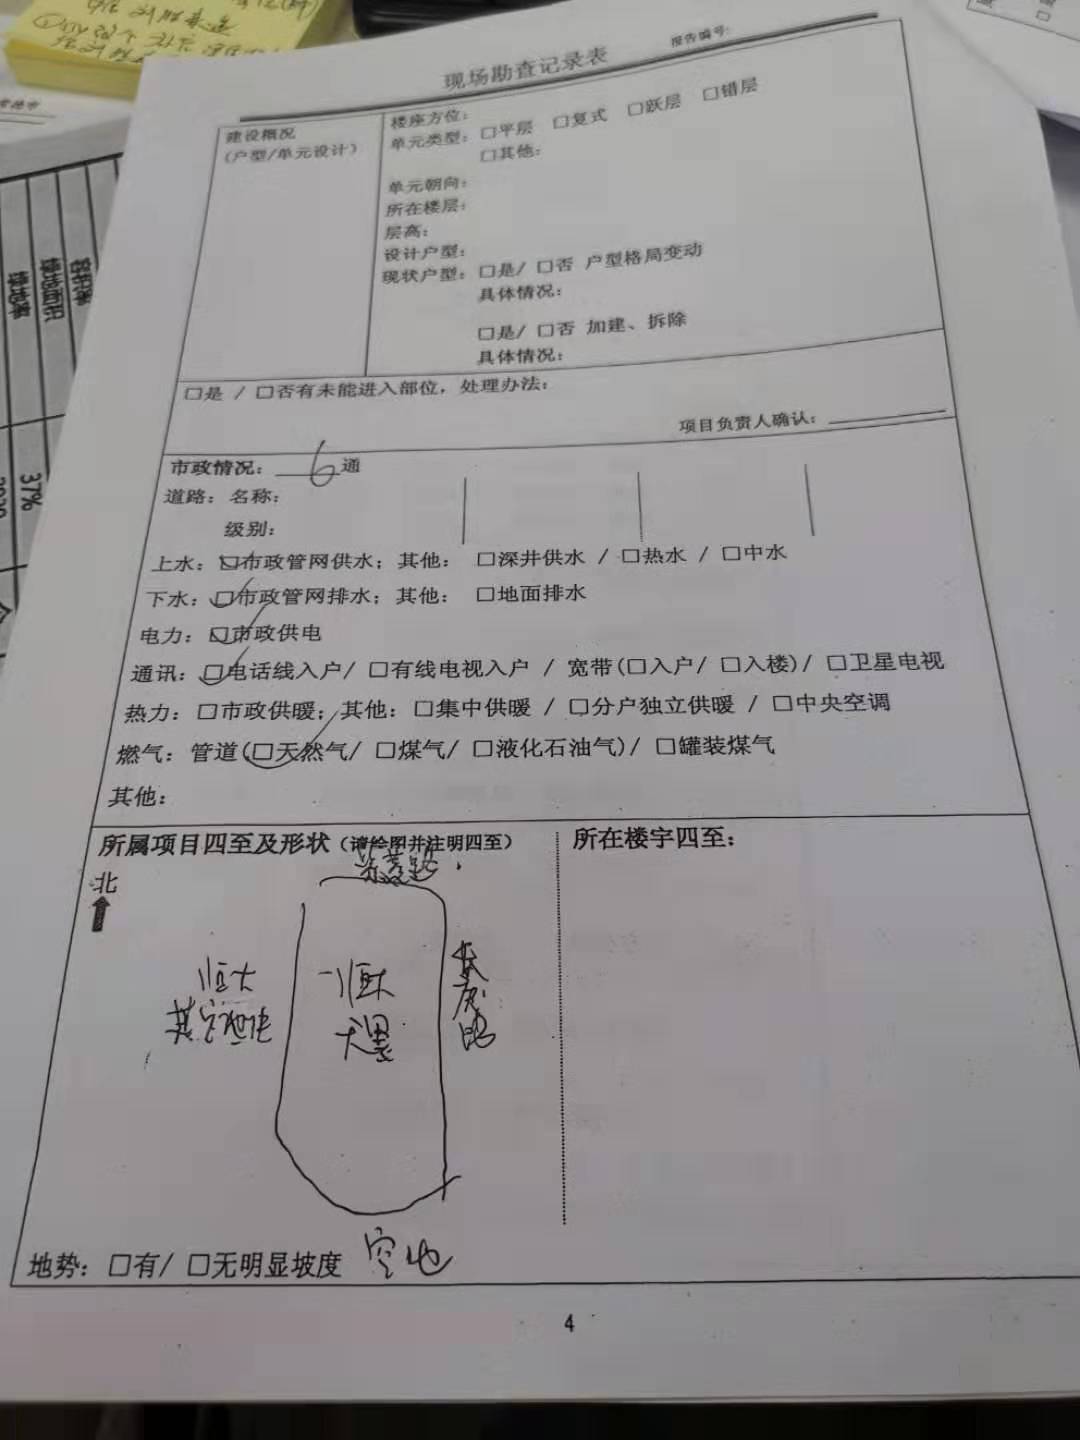 现场勘查记录表
报告编号:
建设概况
(户型/单元设计)
楼座方位:
单元类型: □平层 □复式 □跃层 □错层
□其他:
单元朝向:
所在楼层:
层高:
设计户型:
现状户型: □是/ □否 户型格局变动
具体情况:
□是/ □否 加建、拆除
具体情况:
□是 / □否有未能进入部位, 处理办法:
项目负责人确认:
市政情况: 6 通
道路: 名称:
级别:
上水: □市政管网供水; 其他: □深井供水 / □热水 / □中水
下水: □市政管网排水; 其他: □地面排水
电力: □市政供电
通讯: □电话线入户/ □有线电视入户 / 宽带(□入户/ □入楼)/ □卫星电视
热力: □市政供暖; 其他: □集中供暖 / □分户独立供暖 / □中央空调
燃气: 管道(□天然气/ □煤气/ □液化石油气)/ □罐装煤气
其他:
所属项目四至及形状 (请绘图并注明四至)
所在楼宇四至:
北
恒大
其它地块
恒大
空地
地势: □有/ □无明显坡度
4
容积率
绿地面积
绿地率
37%